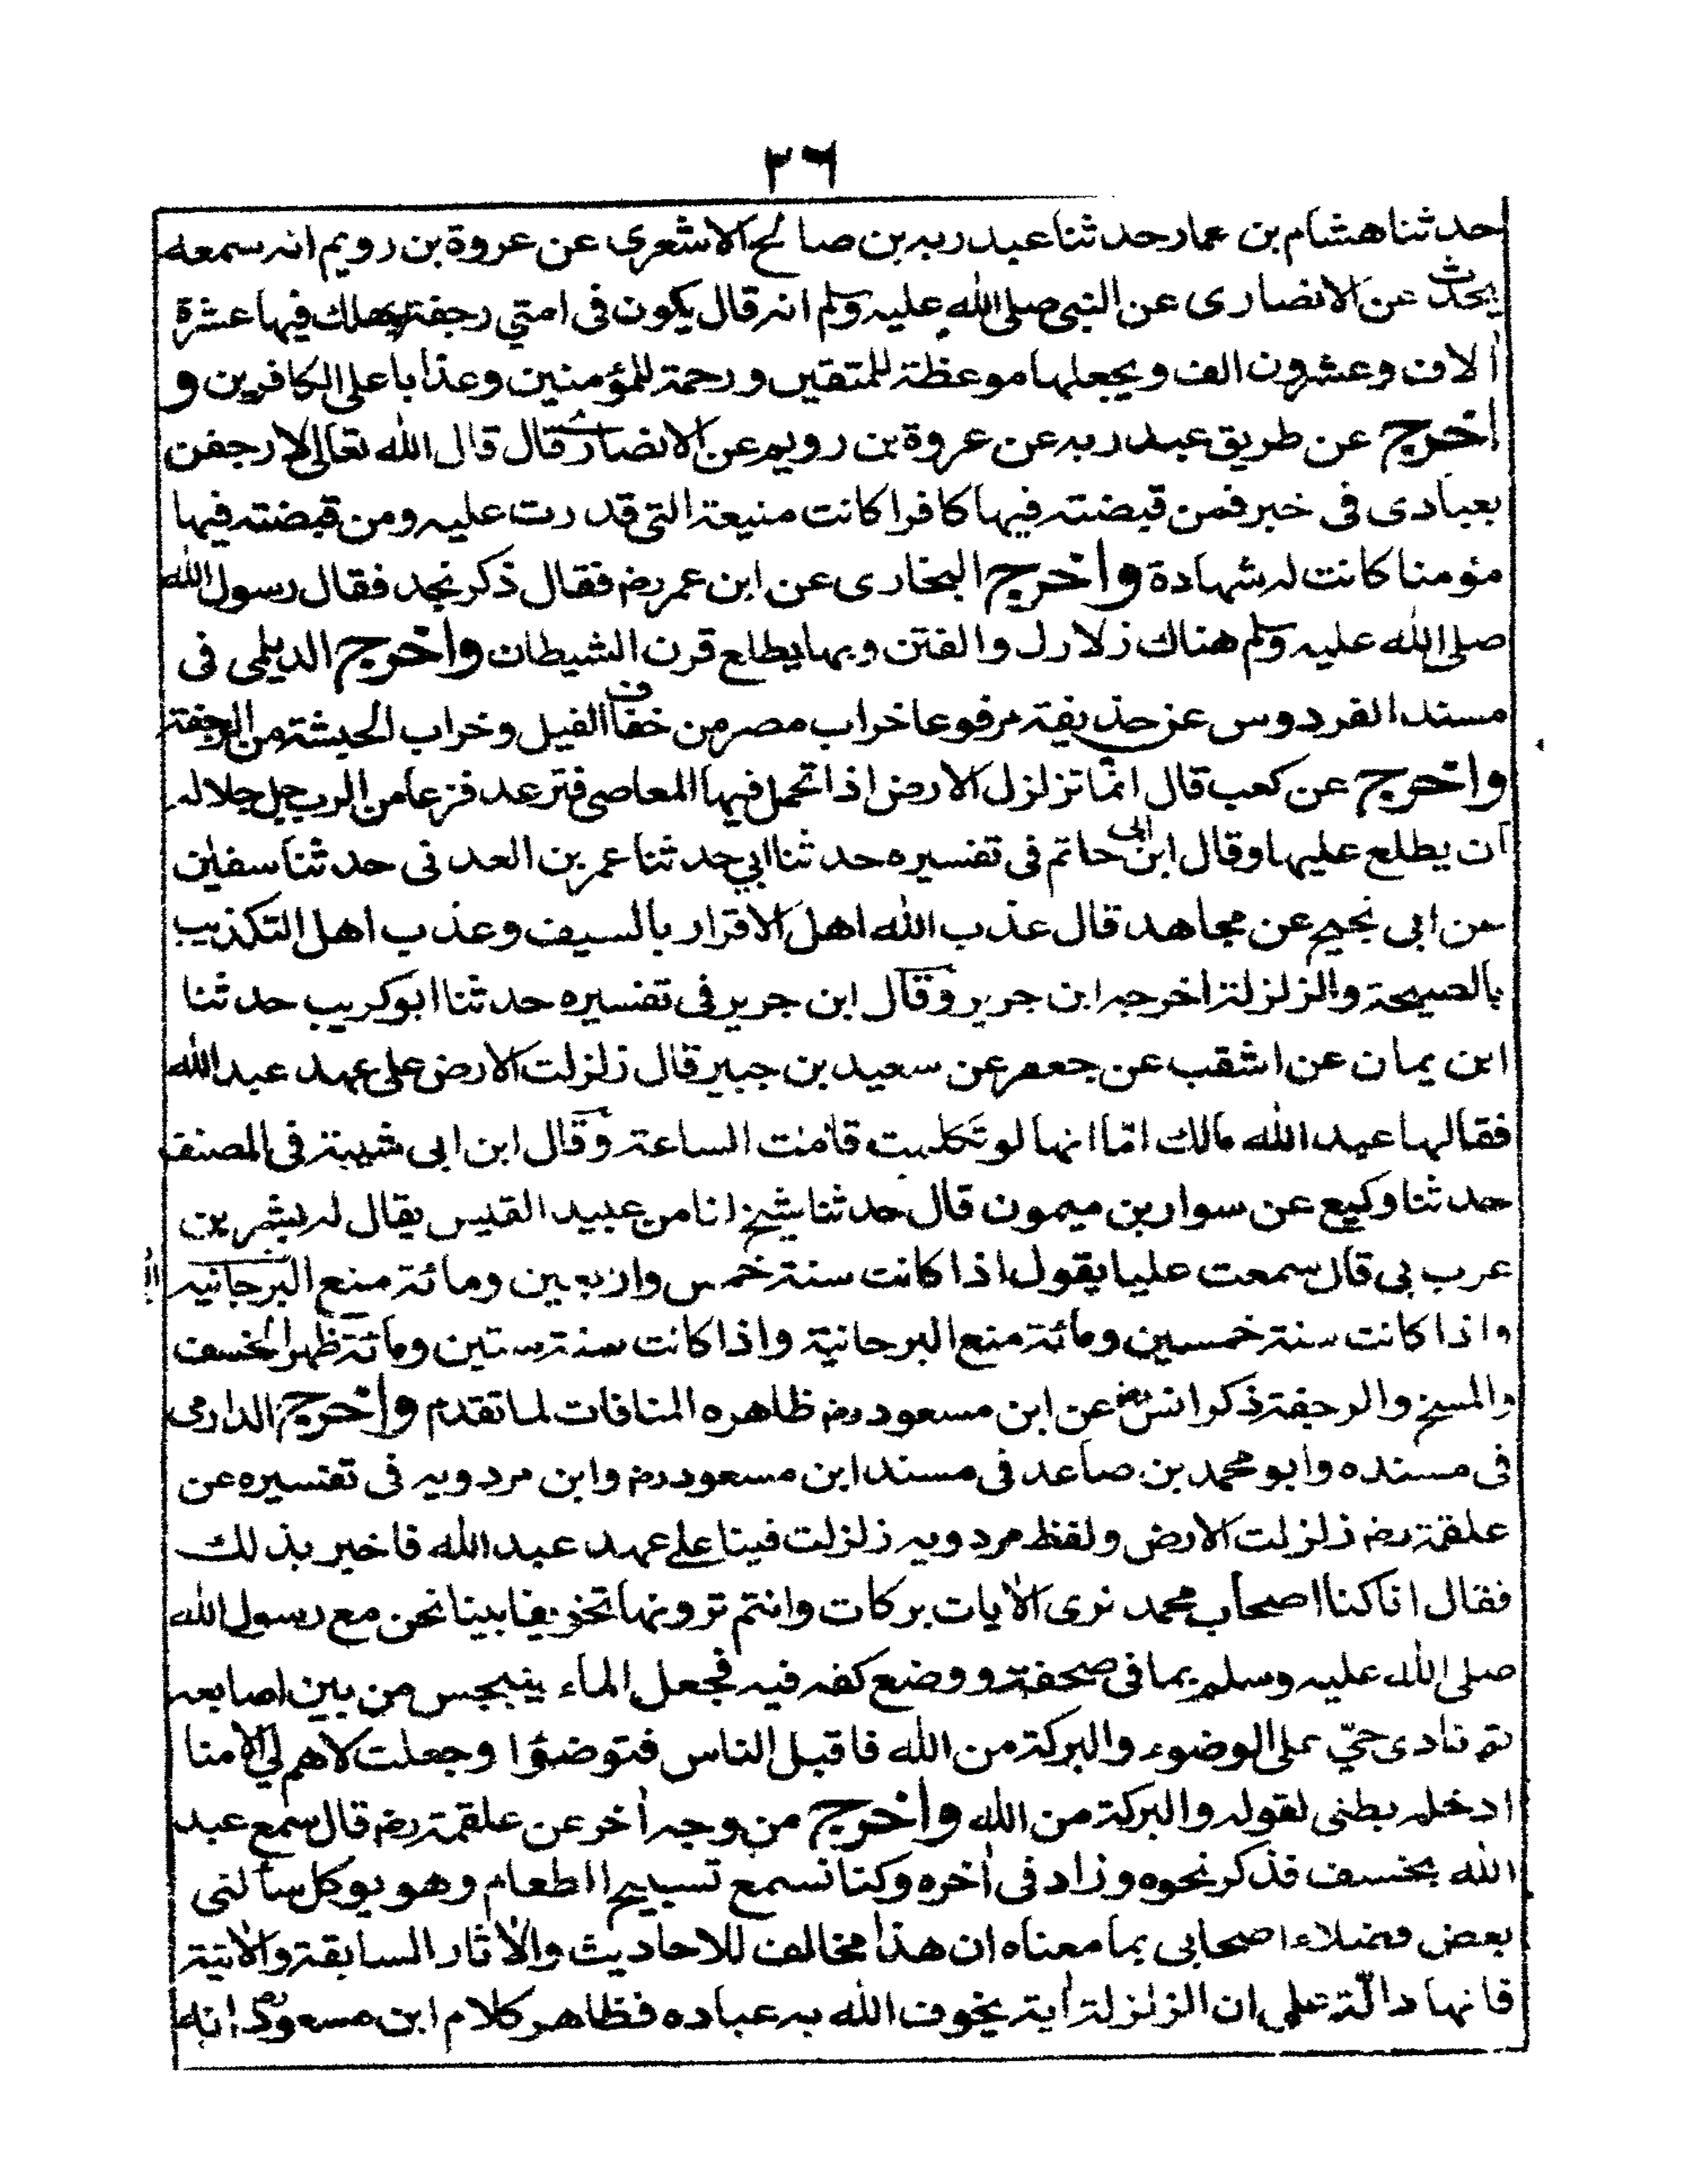 ٢٦
حدثنا هشام بن عمار حدثنا عبد ربه بن صالح الاشعرى عن عروة بن رويم انه سمعه
يحدث عن الانصارى عن النبى صلى الله عليه وسلم انه قال يكون فى امتى رجفة يهلك فيها عشرة
آلاف وعشرون الف ويجعلها موعظة للمتقين ورحمة للمؤمنين وعذابا على الكافرين و
اخرج عن طريق عبد ربه عن عروة بن رويم عن الانصارى قال قال الله تعالى لارجفن
بعبادى فى خير فمن قبضته فيها كافرا كانت منيعة التى قدرت عليه ومن قبضته فيها
مؤمنا كانت له شهادة واخرج البخارى عن ابن عمر رضـ فقال ذكر نجد فقال رسول الله
صلى الله عليه وسلم هناك زلازل والفتن وبها يطلع قرن الشيطان واخرج الديلمى فى
مسند الفردوس عن حذيفة مرفوعا خراب مصر من خفاف الفيل وخراب الحبشة من الرجفة
واخرج عن كعب قال انما تزلزل الارض اذا تحمل فيها المعاصى فترعد فزعا من الرب جل جلاله
ان يطلع عليها وقال ابن ابى حاتم فى تفسيره حدثنا ابي حدثنا عمر بن العدنى حدثنا سفيٰن
عن ابى نجيح عن مجاهد قال عذب الله اهل الاقرار بالسيف وعذب اهل التكذيب
بالصيحة والزلزلة اخرجه ابن جرير وقال ابن جرير فى تفسيره حدثنا ابو كريب حدثنا
ابن يمان عن اشقب عن جعفر عن سعيد بن جبير قال زلزلت الارض على عهد عبد الله
فقال لها عبد الله مالك امّا انها لو تكلمت قامت الساعة وقال ابن ابى شيبة فى المصنف
حدثنا وكيع عن سوار بن ميمون قال حدثنا شيخ انا من عبيد القيس يقال له بشر بن
عرب بى قال سمعت عليا يقول اذا كانت سنة خمس واربعين ومائة منع البرجانيه
واذا كانت سنة خمسين ومائة منع البرحانية واذا كانت سنة ستين ومائة ظهر الخسف
والمسخ والرجفة ذكر انس رضـ عن ابن مسعود رضـ ظاهره المنافات لما تقدم واخرج الدارمى
فى مسنده وابو محمد بن صاعد فى مسند ابن مسعود رضـ وابن مردويه فى تفسيره عن
علقمة رضـ زلزلت الارض ولفظ مردويه زلزلت فينا على عهد عبد الله فاخبر بذلك
فقال اناكنا اصحاب محمد نرى الآيات بركات وانتم ترونها تخويفا بينا نحن مع رسول الله
صلى الله عليه وسلم بما فى صحفة ووضع كفه فيه فجعل الماء ينبجس من بين اصابعه
ثم نادى حيّ على الوضوء والبركة من الله فاقبل الناس فتوضؤا وجعلت لاهم لى الا منا
ادخله بطنى لقوله والبركة من الله واخرج من وجه اٰخر عن علقمة رضـ قال سمع عبد
الله بخسف فذكر نحوه وزاد فى اٰخره وكنا نسمع تسبيح الطعام وهو يوكل سألتى
بعض فضلاء اصحابى بما معناه ان هذا مخالف للاحاديث والاٰثار السابقة والاٰتية
فانها دالّة على ان الزلزلة اٰية يخوف الله به عباده فظاهر كلام ابن مسعود رضـ انه